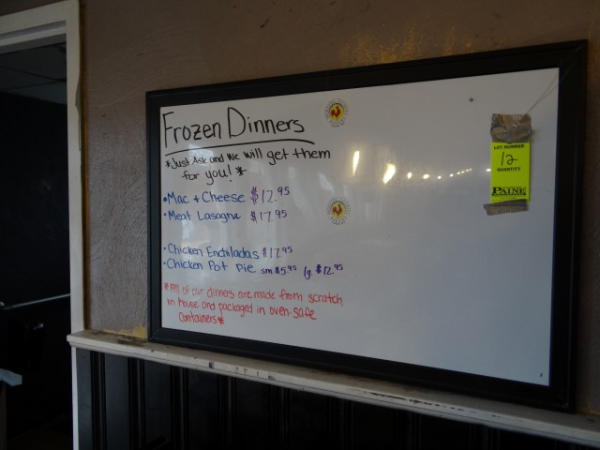 Frozen Dinners
*Just Ask and We will get them
for you! *
• Mac + Cheese $12.95
• Meat Lasagna $17.95
• Chicken Enchiladas $12.95
• Chicken Pot Pie sm $5.95 lg $12.95
*All of our dinners are made from scratch
in house and packaged in oven-safe
Containers*
LOT NUMBER
12
QUANTITY
PAYNE